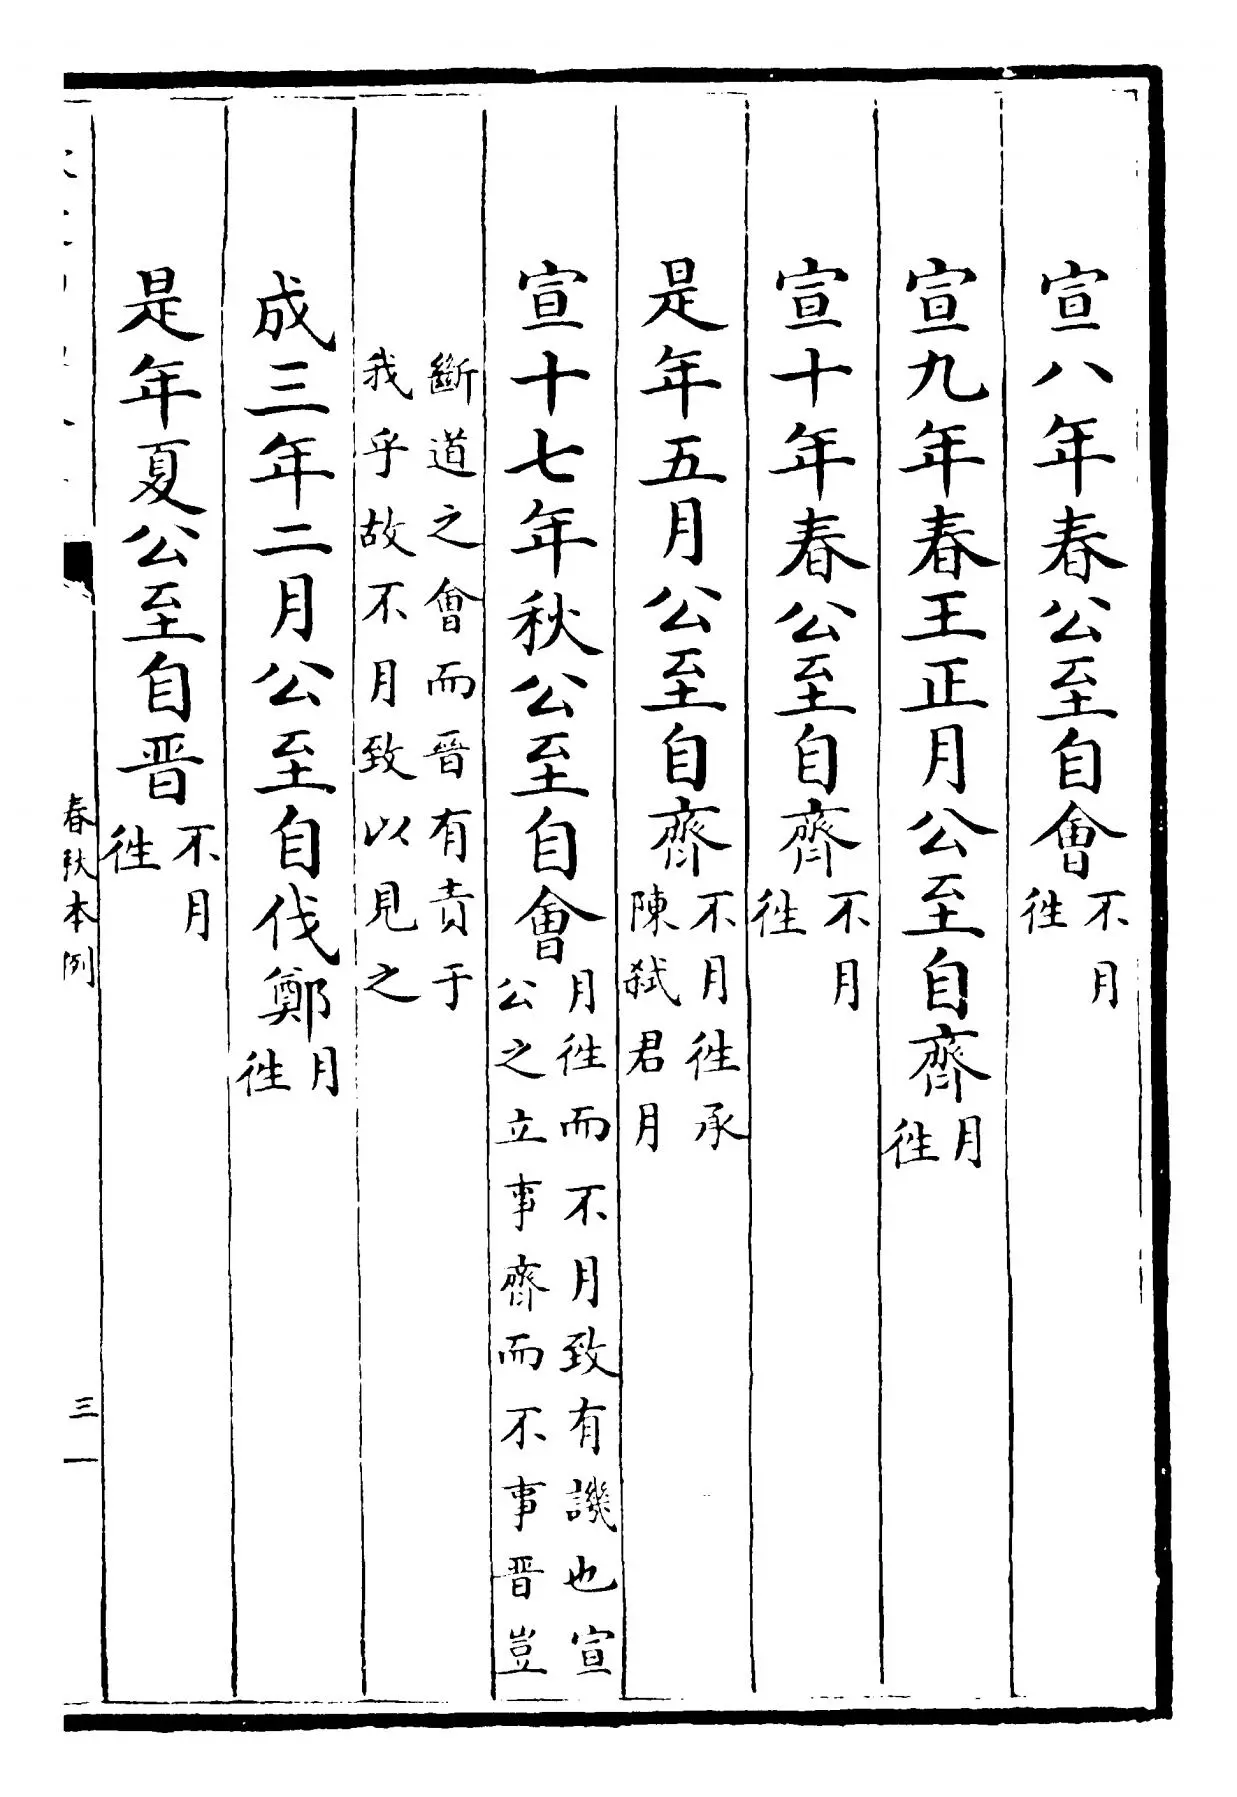 宣八年春公至自會不月徃
宣九年春王正月公至自齊月徃
宣十年春公至自齊不月徃
是年五月公至自齊不月徃承陳弒君月
宣十七年秋公至自會月徃而不月致有譏也宣公之立事齊而不事晋豈
斷道之會而晋有責于我乎故不月致以見之
成三年二月公至自伐鄭月徃
是年夏公至自晋不月徃
春秋本例
三一